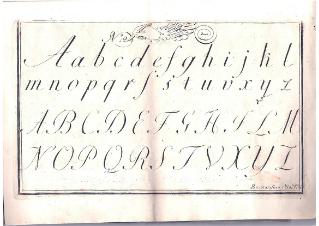 Aabcdefghijkl
mnopqrſstuvxyz
ABCDEFGHILM
NOPQRSTVXYZ